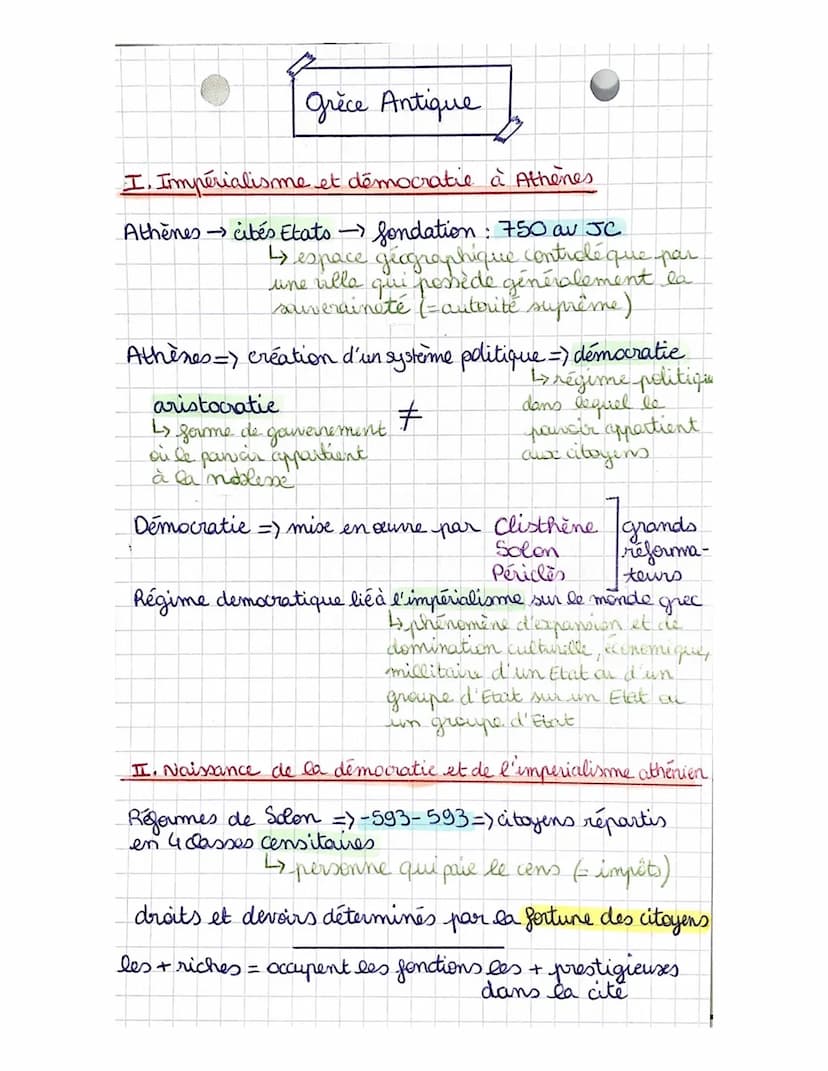 Grèce Antique
I. Impérialisme et démocratie à Athènes
Athènes → cités Etats → fondation : 750 av JC
↳ espace géographique controlé que par
une ville qui possède généralement la
souveraineté (= autorité suprême)
Athènes => création d'un système politique => démocratie
↳ régime politique
dans lequel le
pouvoir appartient
aux citoyens
≠
aristocratie
↳ forme de gouvernement
où le pouvoir appartient
à la noblesse
Démocratie => mise en œuvre par Clisthène
Solon
Périclès
grands
réforma-
teurs
Régime democratique lié à l'impérialisme sur le monde grec
↳ phénomène d'expansion et de
domination culturelle, économique,
millitaire d'un Etat ou d'un
groupe d'Etat sur un Etat ou
un groupe d'Etat
II. Naissance de la démocratie et de l'imperialisme athénien
Réformes de Solon => -593-593 => citoyens répartis
en 4 classes censitaires
↳ personne qui paie le cens (= impôts)
droits et devoirs déterminés par la fortune des citoyens
les + riches = occupent les fonctions les + prestigieuses
dans la cité